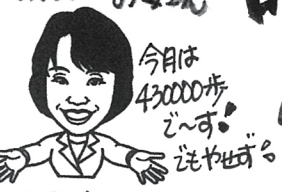 今月は
430000歩
で〜す!
でもやせず!